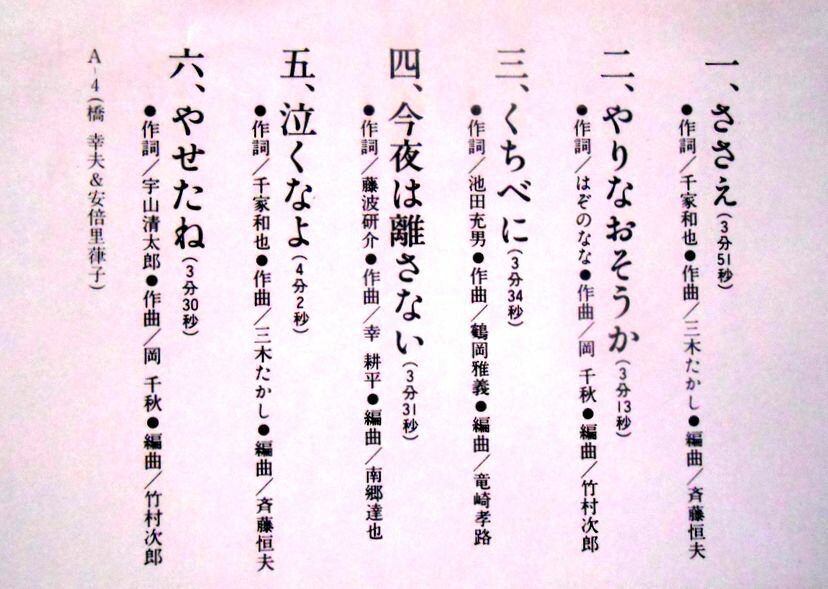 一、ささえ(3分51秒)
●作詞/千家和也●作曲/三木たかし●編曲/斉藤恒夫
二、やりなおそうか(3分13秒)
●作詞/はぞのなな●作曲/岡 千秋●編曲/竹村次郎
三、くちべに(3分34秒)
●作詞/池田充男●作曲/鶴岡雅義●編曲/竜崎孝路
四、今夜は離さない(3分31秒)
●作詞/藤波研介●作曲/幸 耕平●編曲/南郷達也
五、泣くなよ(4分2秒)
●作詞/千家和也●作曲/三木たかし●編曲/斉藤恒夫
六、やせたね(3分30秒)
●作詞/宇山清太郎●作曲/岡 千秋●編曲/竹村次郎
A-4(橋 幸夫&安倍里葎子)